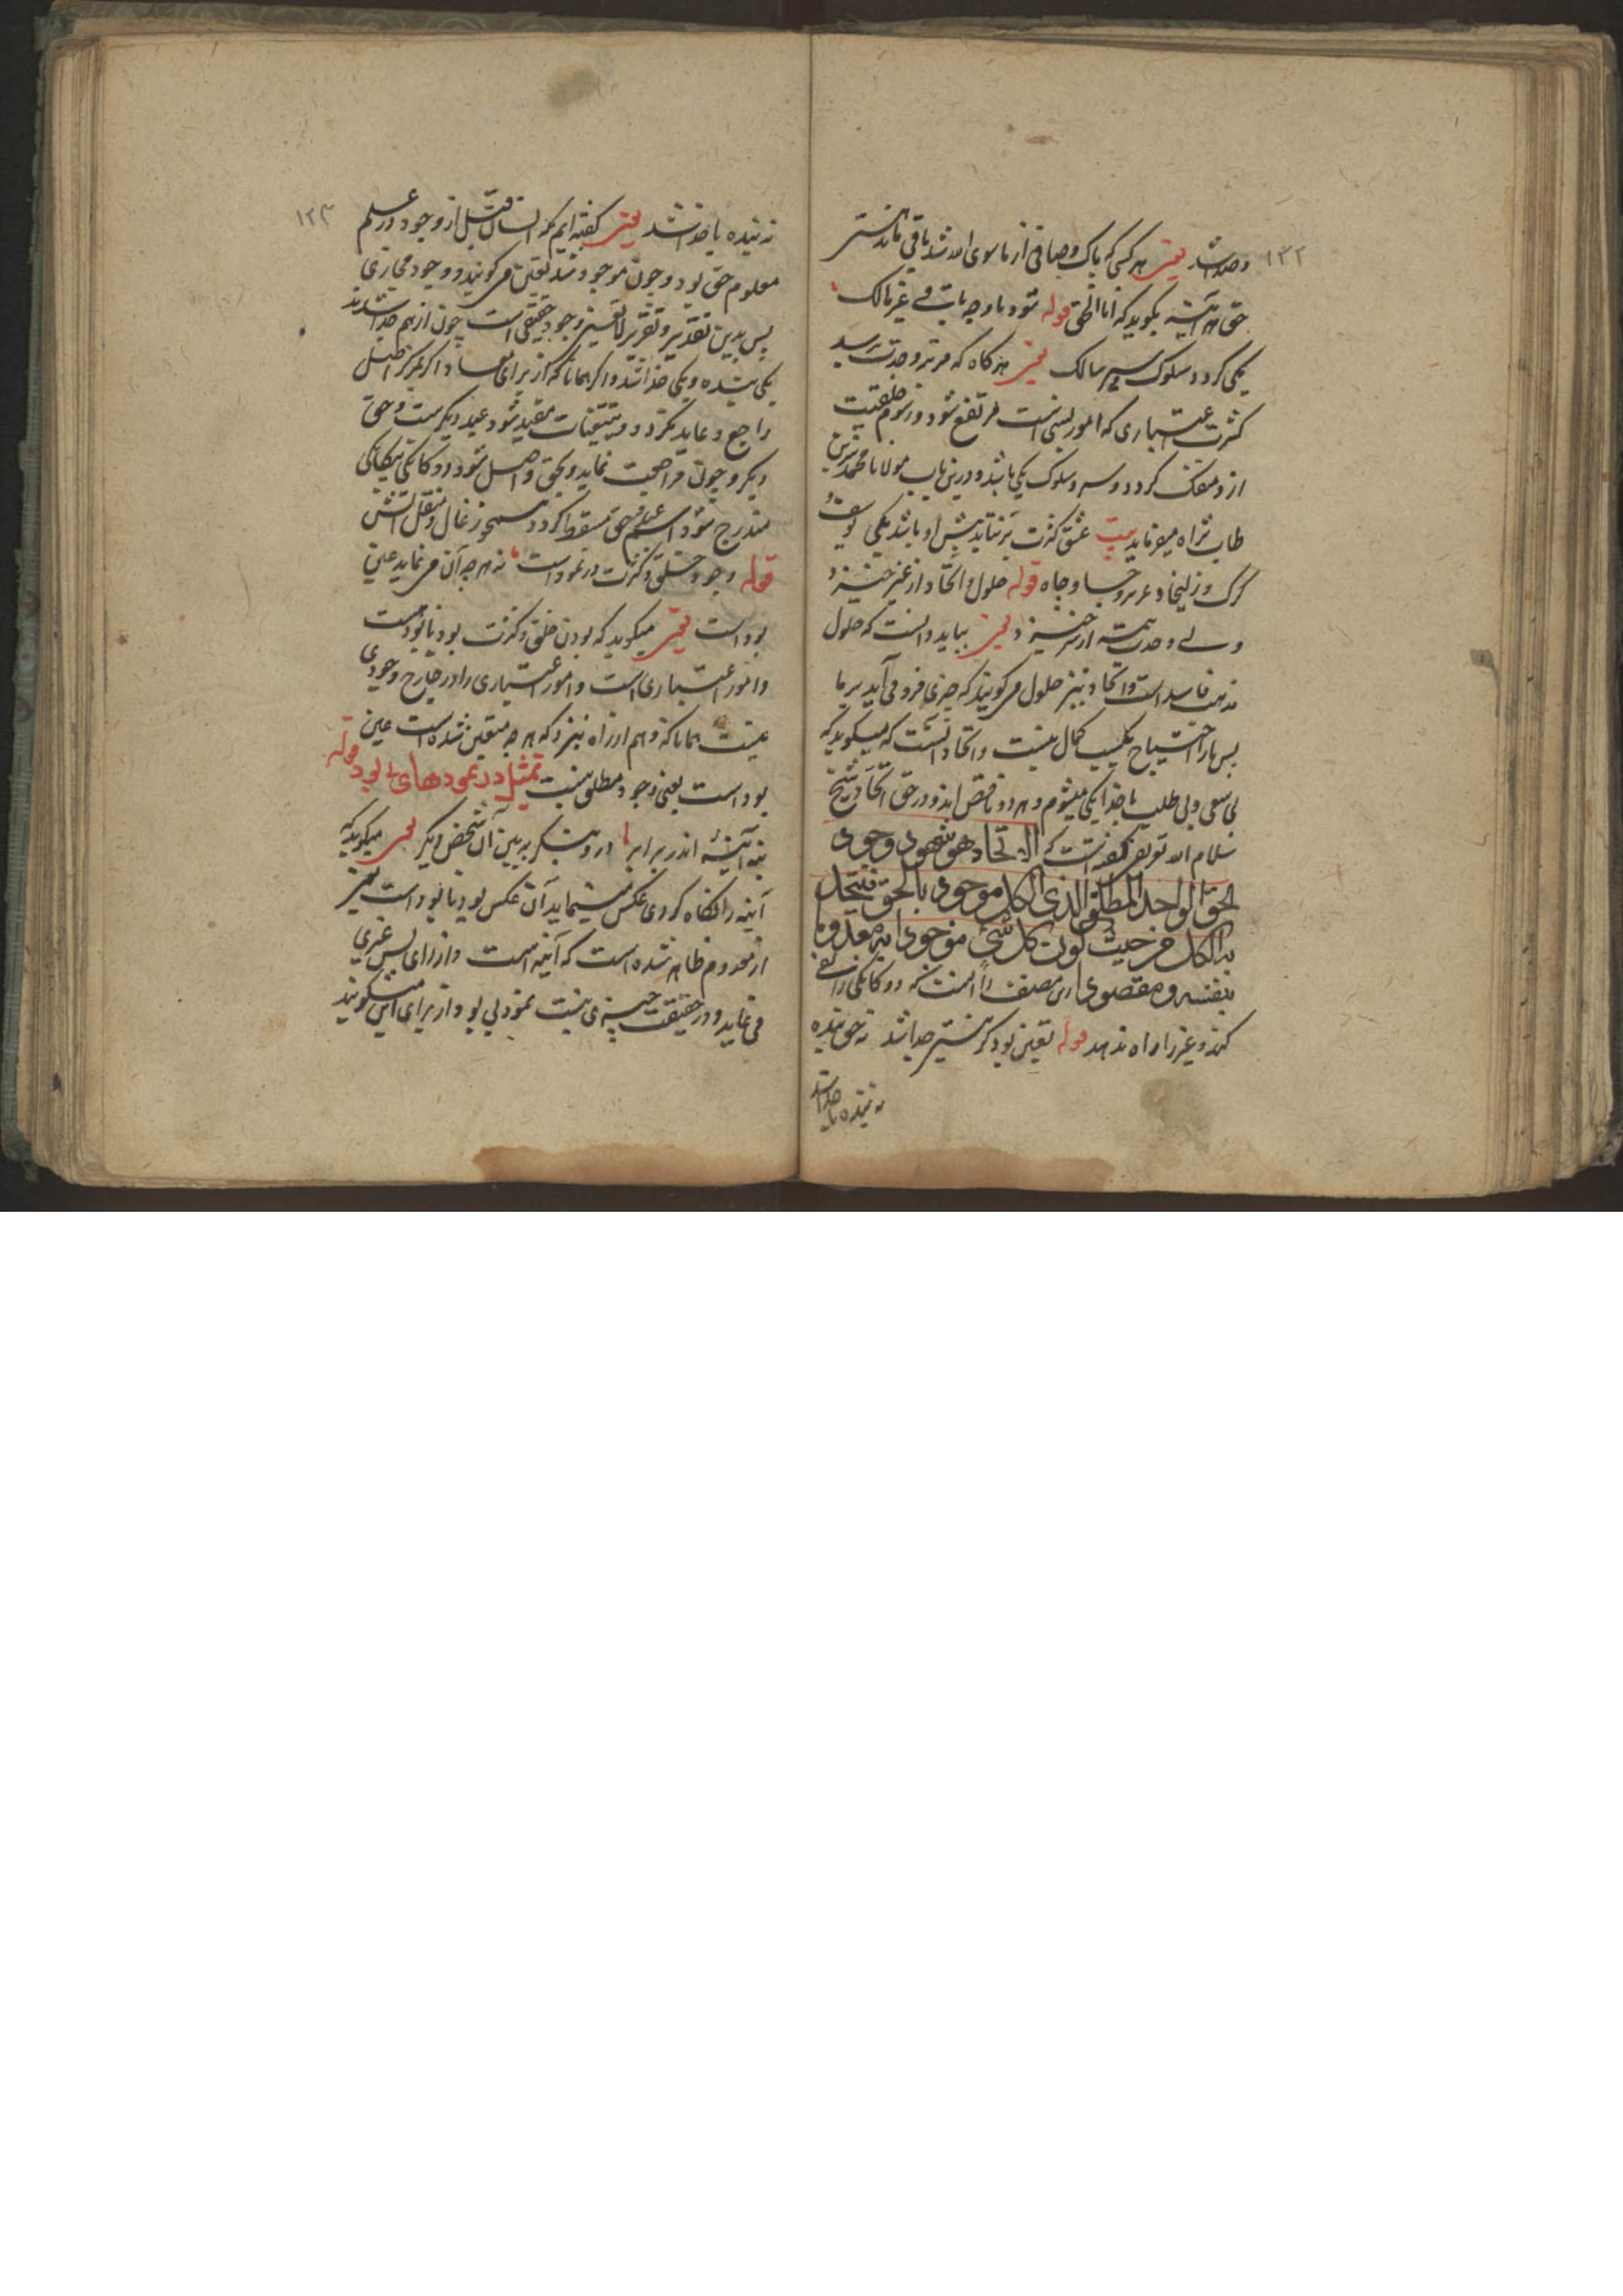 ۱۳۲
و صدا شد یعنی هر کسی که پاک و صافی از ماسوی الله شد باقی ماند هستی
حق هر آئینه بگوید که انا الحق قوله شود با وجه باقی غیر هالک
یکی گردد سلوک و سیر سالک یعنی هر گاه که مرتبه وحدت رسید
کثرت اعتباری که امور نسبی است مرتفع شود و رسوم خلقیت
ازو منفک گردد و سیر و سلوک یکی باشد و درین باب مولانا محمد شیرین
طاب ثراه میفرماید بیت عشق کثرت بر نتابد پیش او باشد یکی یوسف و
گرگ و زلیخا و عزیز و جاه قوله حلول و اتحاد از غیر خیزد
ولی وحدت همه از سیر خیزد یعنی بباید دانست که حلول
مذهب فاسد است و اتحاد نیز حلول می گویند که چیزی فرو می آید بر ما
پس ما را احتیاج بکسب کمال نیست و اتحاد آنست که میگوید که
بی سعی و بی طلب با خدا یکی میشوم و هر دو ناقص اند و در حق اتحاد شیخ
سلام الله تعریف گفته است که الاتحاد هو شهود وجود
الحق الواحد المطلق الذی الکل موجود بالحق فیتحد
به الکل من حیث کون کل شئ موجودا به معدوما
بنفسه و مقصود این مصنف را اینست که دوگانگی را نفی
کند و غیر را راه ندهد قوله تعین بود کز هستی جدا شد نه حق بنده
نه بنده با خدا شد
۱۳۳
نه بنده با خدا شد یعنی گفته ایم که انسان قبل از وجود در علم
معلوم حق بود و چون موجود شد تعین می گویند و وجود مجازی
پس بدین تقدیر و تقریر لا تعین وجود حقیقی است چون از هم جدا شدند
یکی بنده و یکی خدا شد و اگر همانا که از برای معاد اگر بمرکز اصل
راجع و عاید نگردد و بتعینات مقید شود عبد دیگرست و حق
دیگر و چون مراجعت نماید و بحق واصل شود دوگانگی بیگانگی
مندرج شود اسم علم و حق مسقط گردد همچو زغال و منقل آتش
قوله وجود خلق و کثرت در نمود است نه هر چه آن می نماید عین
بود است یعنی میگوید که بودن خلق و کثرت بود نابود است
و امور اعتباری است و امور اعتباری را در خارج وجودی
نیست همانا که وهم از راه نبرد که هر چه متعین شده است عین
بود است یعنی وجود مطلق نیست تمثیل در نمودهای بی بود قوله
بنه آئینه اندر برابر درو بنگر ببین آن شخص دیگر یعنی میگوید که
آینه را نگاه کردی عکس مینماید آن عکس بود نابود است نیز
از معدوم ظاهر شده است که آینه است و از رای پس غیری
می نماید و در حقیقت چیزی نیست نمود بی بود از برای این میگویند